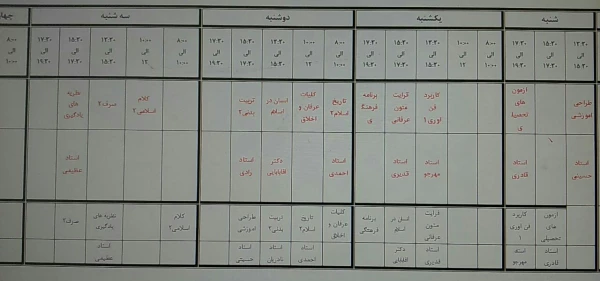 شنبه یکشنبه دوشنبه سه شنبه
۱۳:۳۰ ۱۵:۳۰ ۱۷:۳۰ ۸:۰۰ ۱۰:۰۰ ۱۳:۳۰ ۱۵:۳۰ ۱۷:۳۰ ۸:۰۰ ۱۰:۰۰ ۱۳:۳۰ ۱۵:۳۰ ۱۷:۳۰ ۸:۰۰ ۱۰:۰۰ ۱۳:۳۰ ۱۵:۳۰ ۱۷:۳۰ ۸:۰۰
الی الی الی الی الی الی الی الی الی الی الی الی الی الی الی الی الی الی الی
۱۵:۳۰ ۱۷:۳۰ ۱۹:۳۰ ۱۰:۰۰ ۱۲ ۱۵:۳۰ ۱۷:۳۰ ۱۹:۳۰ ۱۰:۰۰ ۱۲ ۱۵:۳۰ ۱۷:۳۰ ۱۹:۳۰ ۱۰:۰۰ ۱۲ ۱۵:۳۰ ۱۷:۳۰ ۱۹:۳۰ ۱۰:۰۰
طراحی
آموزشی
آزمون
های
تحصیل
ی
کاربرد
فن
آوری ۱
قرایت
متون
عرفانی
برنامه
فرهنگ
ی
تاریخ
اسلام۲
کلیات
عرفان و
اخلاق
انسان در
اسلام
تربیت
بدنی۲
کلام
اسلامی۲
صرف۲
نظریه
های
یادگیری
استاد
حسینی
استاد
قادری
استاد
مهرجو
استاد
قدیری
استاد
احمدی
دکتر
آقابابایی
استاد
رادی
استاد
عظیمی
آزمون
های
تحصیلی
کاربرد
فن آوری
۱
قرایت
متون
عرفانی
انسان در
اسلام
برنامه
فرهنگی
کلیات
عرفان و
اخلاق
تاریخ
اسلام۲
تربیت
بدنی۲
طراحی
آموزشی
کلام
اسلامی۲
نظریه های
یادگیری
صرف۲
استاد
قادری
استاد
مهرجو
استاد
قدیری
دکتر
استاد
احمدی
استاد
استاد
حسینی
استاد
عظیمی